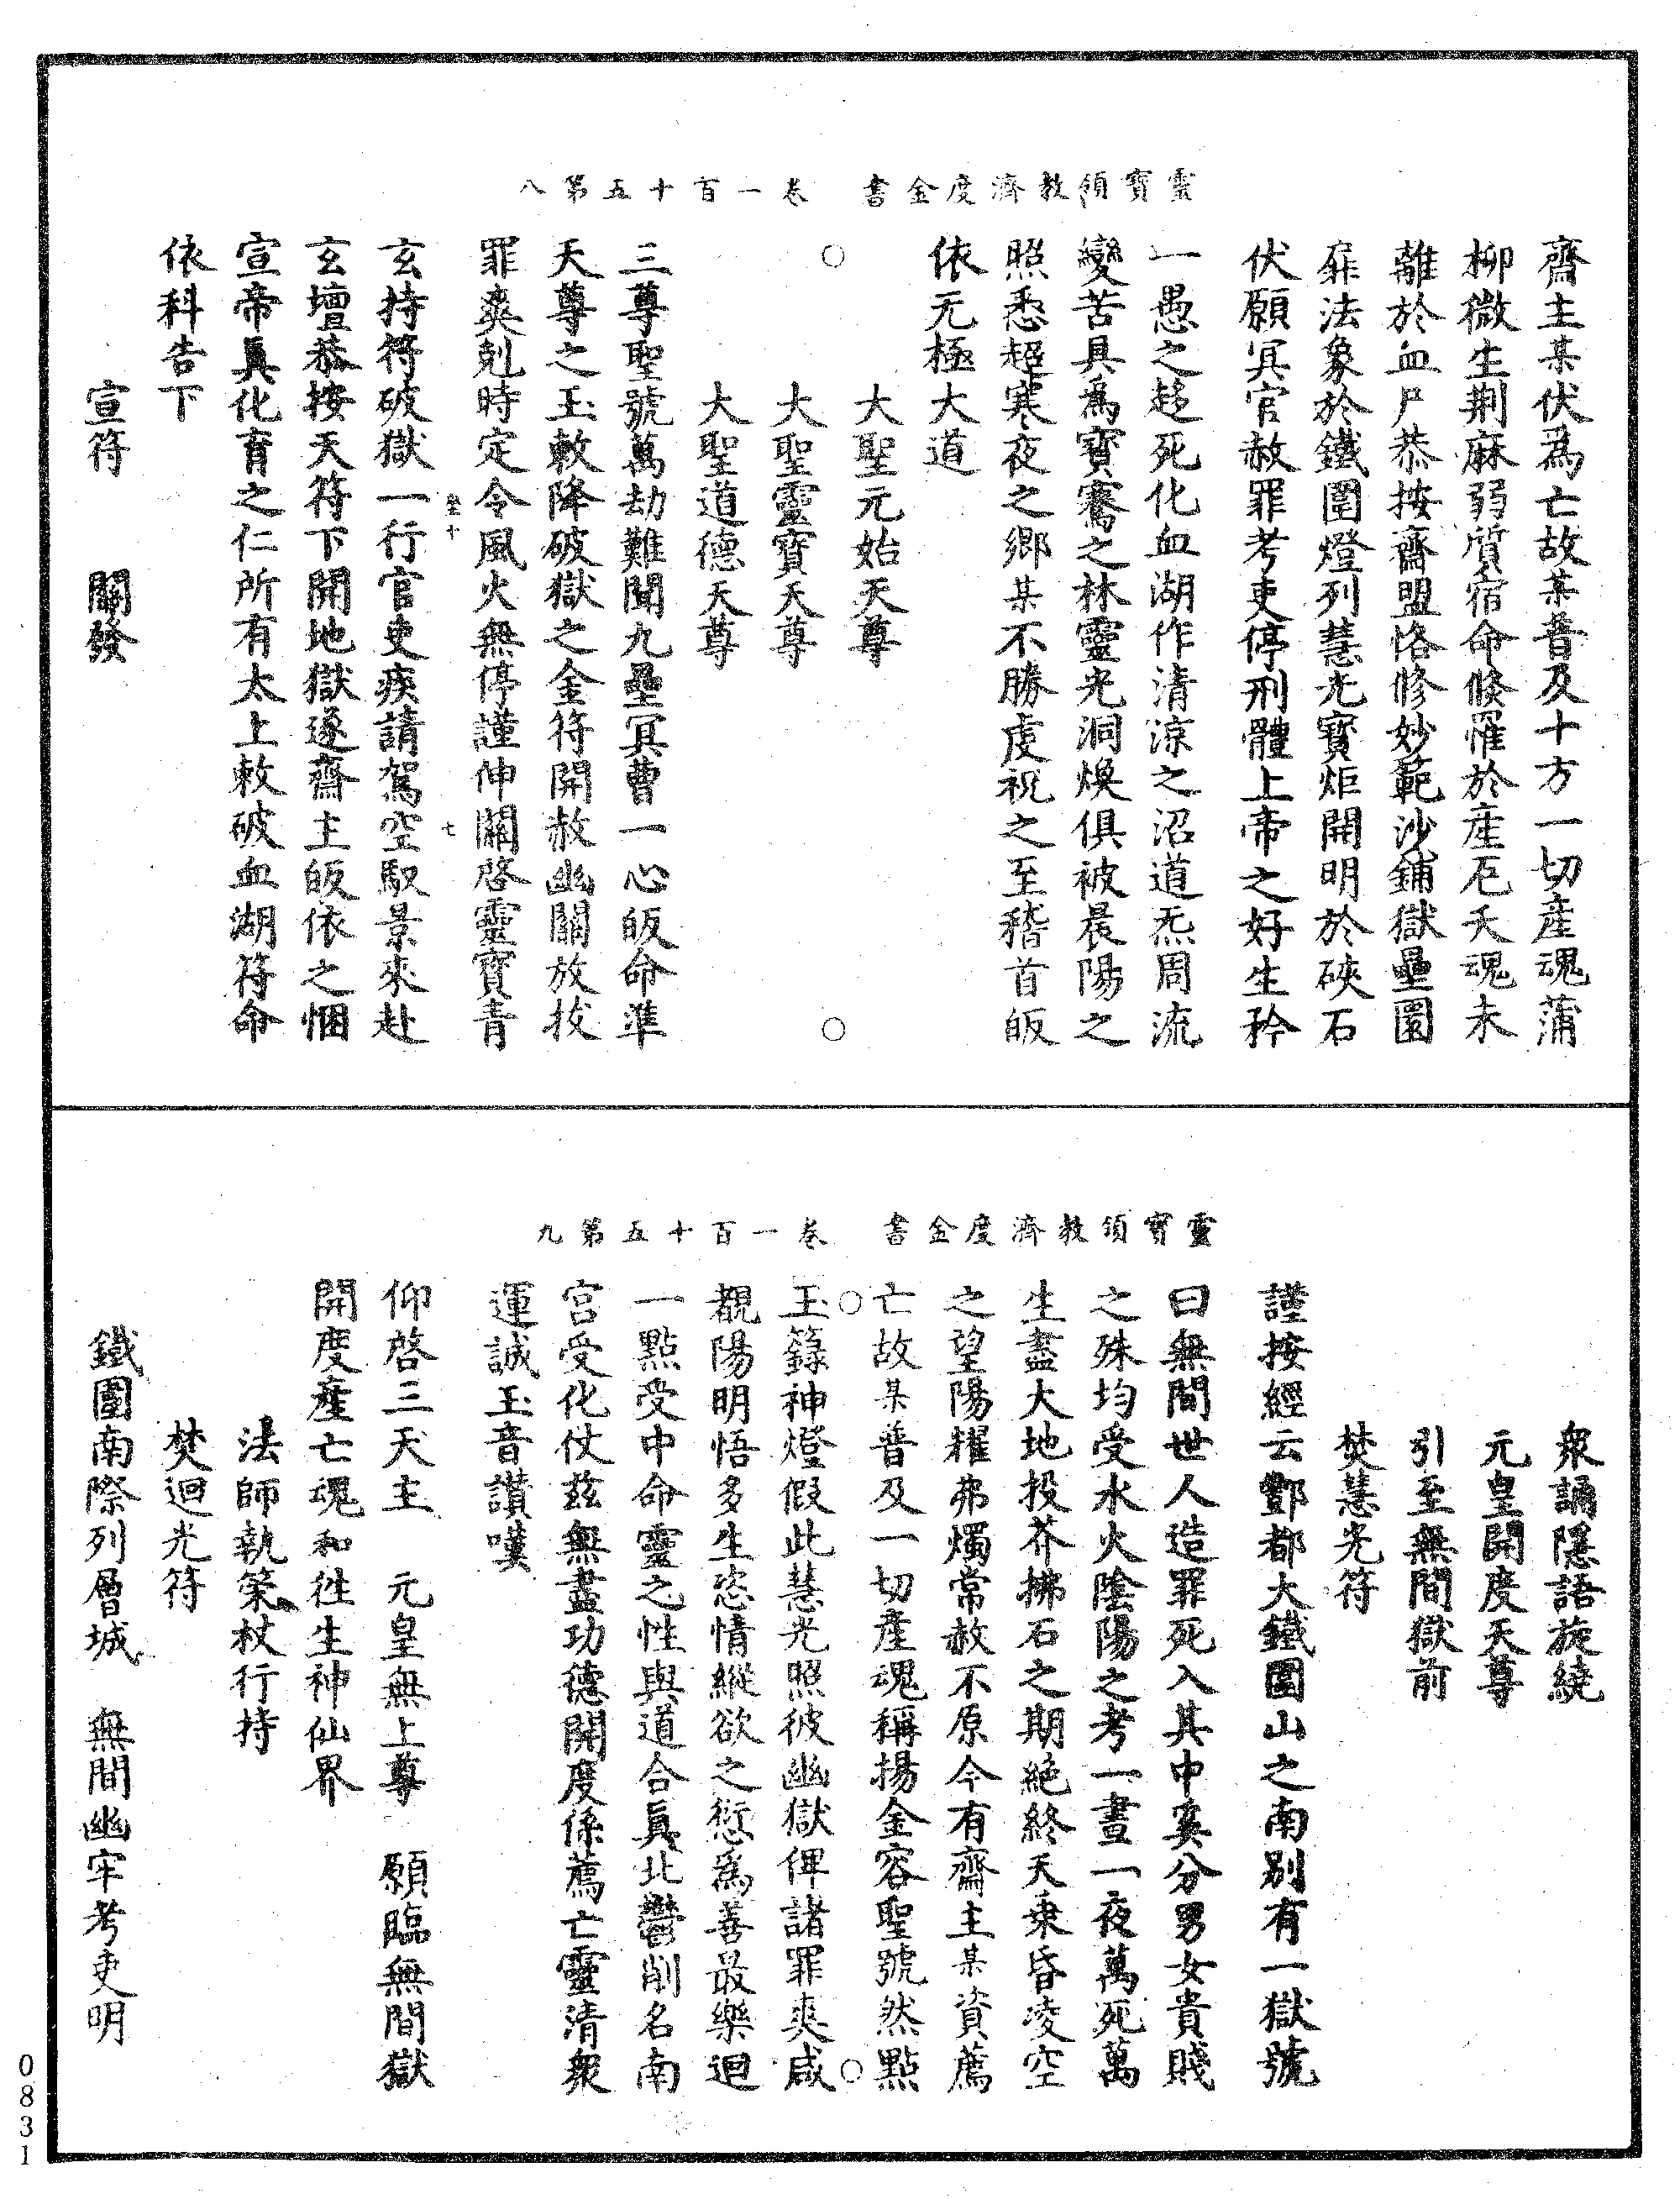 靈寶領教濟度金書　卷一百十五第八
齋主某伏爲亡故某普及十方一切產魂蒲
柳微生荆麻弱質宿命倐罹於產厄夭魂未
離於血尸恭按齋盟恪修妙範沙鋪獄壘圜
扉法象於鐵圍燈列慧光寶炬開明於硤石
伏願冥官赦罪考吏停刑體上帝之好生矜
一愚之趍死化血湖作清涼之沼道炁周流
變苦具爲寶騫之林靈光洞煥俱被晨陽之
照悉超寒夜之鄉某不勝虔祝之至稽首皈
依元極大道
大聖元始天尊
○　大聖靈寶天尊　○
大聖道德天尊
三尊聖號萬劫難聞九壘冥曹一心皈命準
天尊之玉敕降破獄之金符開赦幽關放拔
罪爽剋時定令風火無停謹伸關啓靈寶青
七
玄持符破獄一行官吏疾請駕空馭景來赴
玄壇恭按天符下開地獄遂齋主皈依之悃
宣帝眞化育之仁所有太上敕破血湖符命
依科告下
宣符　關發
靈寶領教濟度金書　卷一百十五第九
衆誦隱語旋繞
元皇開度天尊
引至無間獄前
焚慧光符
謹按經云酆都大鐵圍山之南別有一獄號
曰無間世人造罪死入其中寔分男女貴賤
之殊均受水火陰陽之考一晝一夜萬死萬
生盡大地投芥拂石之期絕終天乗昏凌空
之望陽耀弗燭常赦不原今有齋主某資薦
亡故某普及一切產魂稱揚金容聖號然點
○　○
玉籙神燈假此慧光照彼幽獄俾諸罪爽咸
覩陽明悟多生恣情縱欲之愆爲善最樂迴
一點受中命靈之性與道合眞北鬱削名南
宮受化仗兹無盡功德開度係薦亡靈清衆
運誠玉音讃嘆
仰啓三天主　元皇無上尊　願臨無間獄
開度產亡魂和徃生神仙界
法師執策杖行持
焚迴光符
鐵圍南際列層城　無間幽牢考吏明
0831